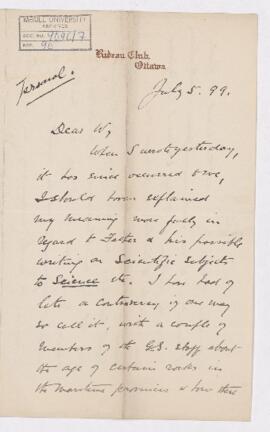 McGILL UNIVERSITY
ARCHIVES
ACC. NO.
REF.
Rideau Club,
Ottawa
Personal.
July 5. 99.
Dear W,
When I wrote yesterday,
it has since occurred to me,
I should have explained
my meaning more fully in
regard to & his possible
writing on Scientific subjects
to Science etc. I have had of
late a controversy if one may
so call it, with a couple of
members of the G.S. staff about
the age of certain rocks in
the Maritime provinces & how there